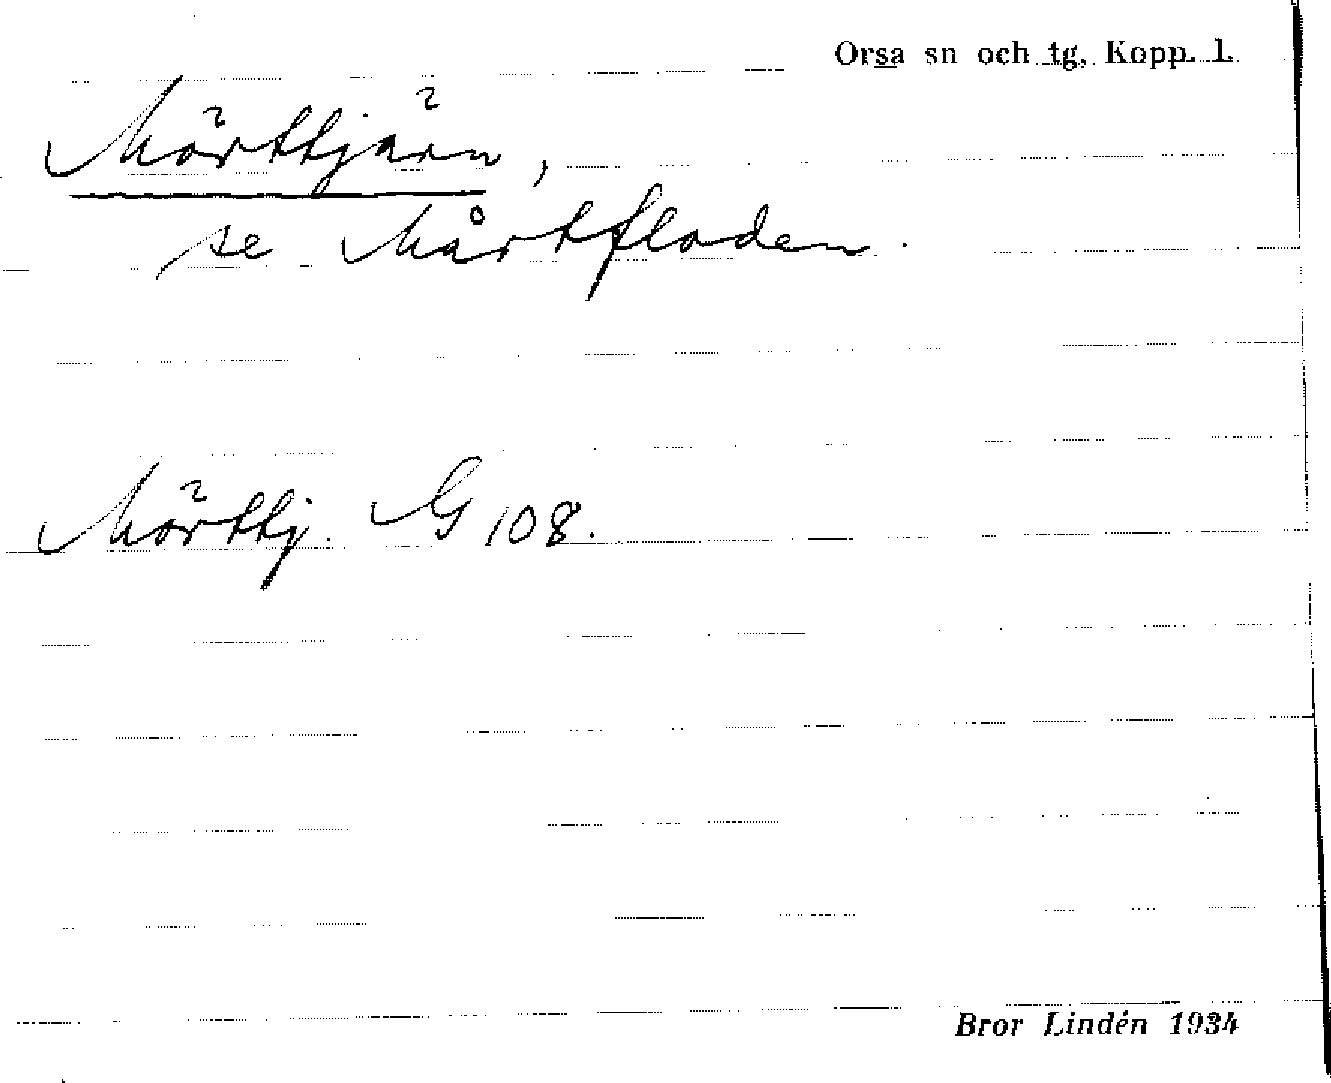 Orsa sn och tg, Kopp. l.
Mörttjärn,
se Mårtfloden.
Mörttj. G 108.
Bror Lindén 1934